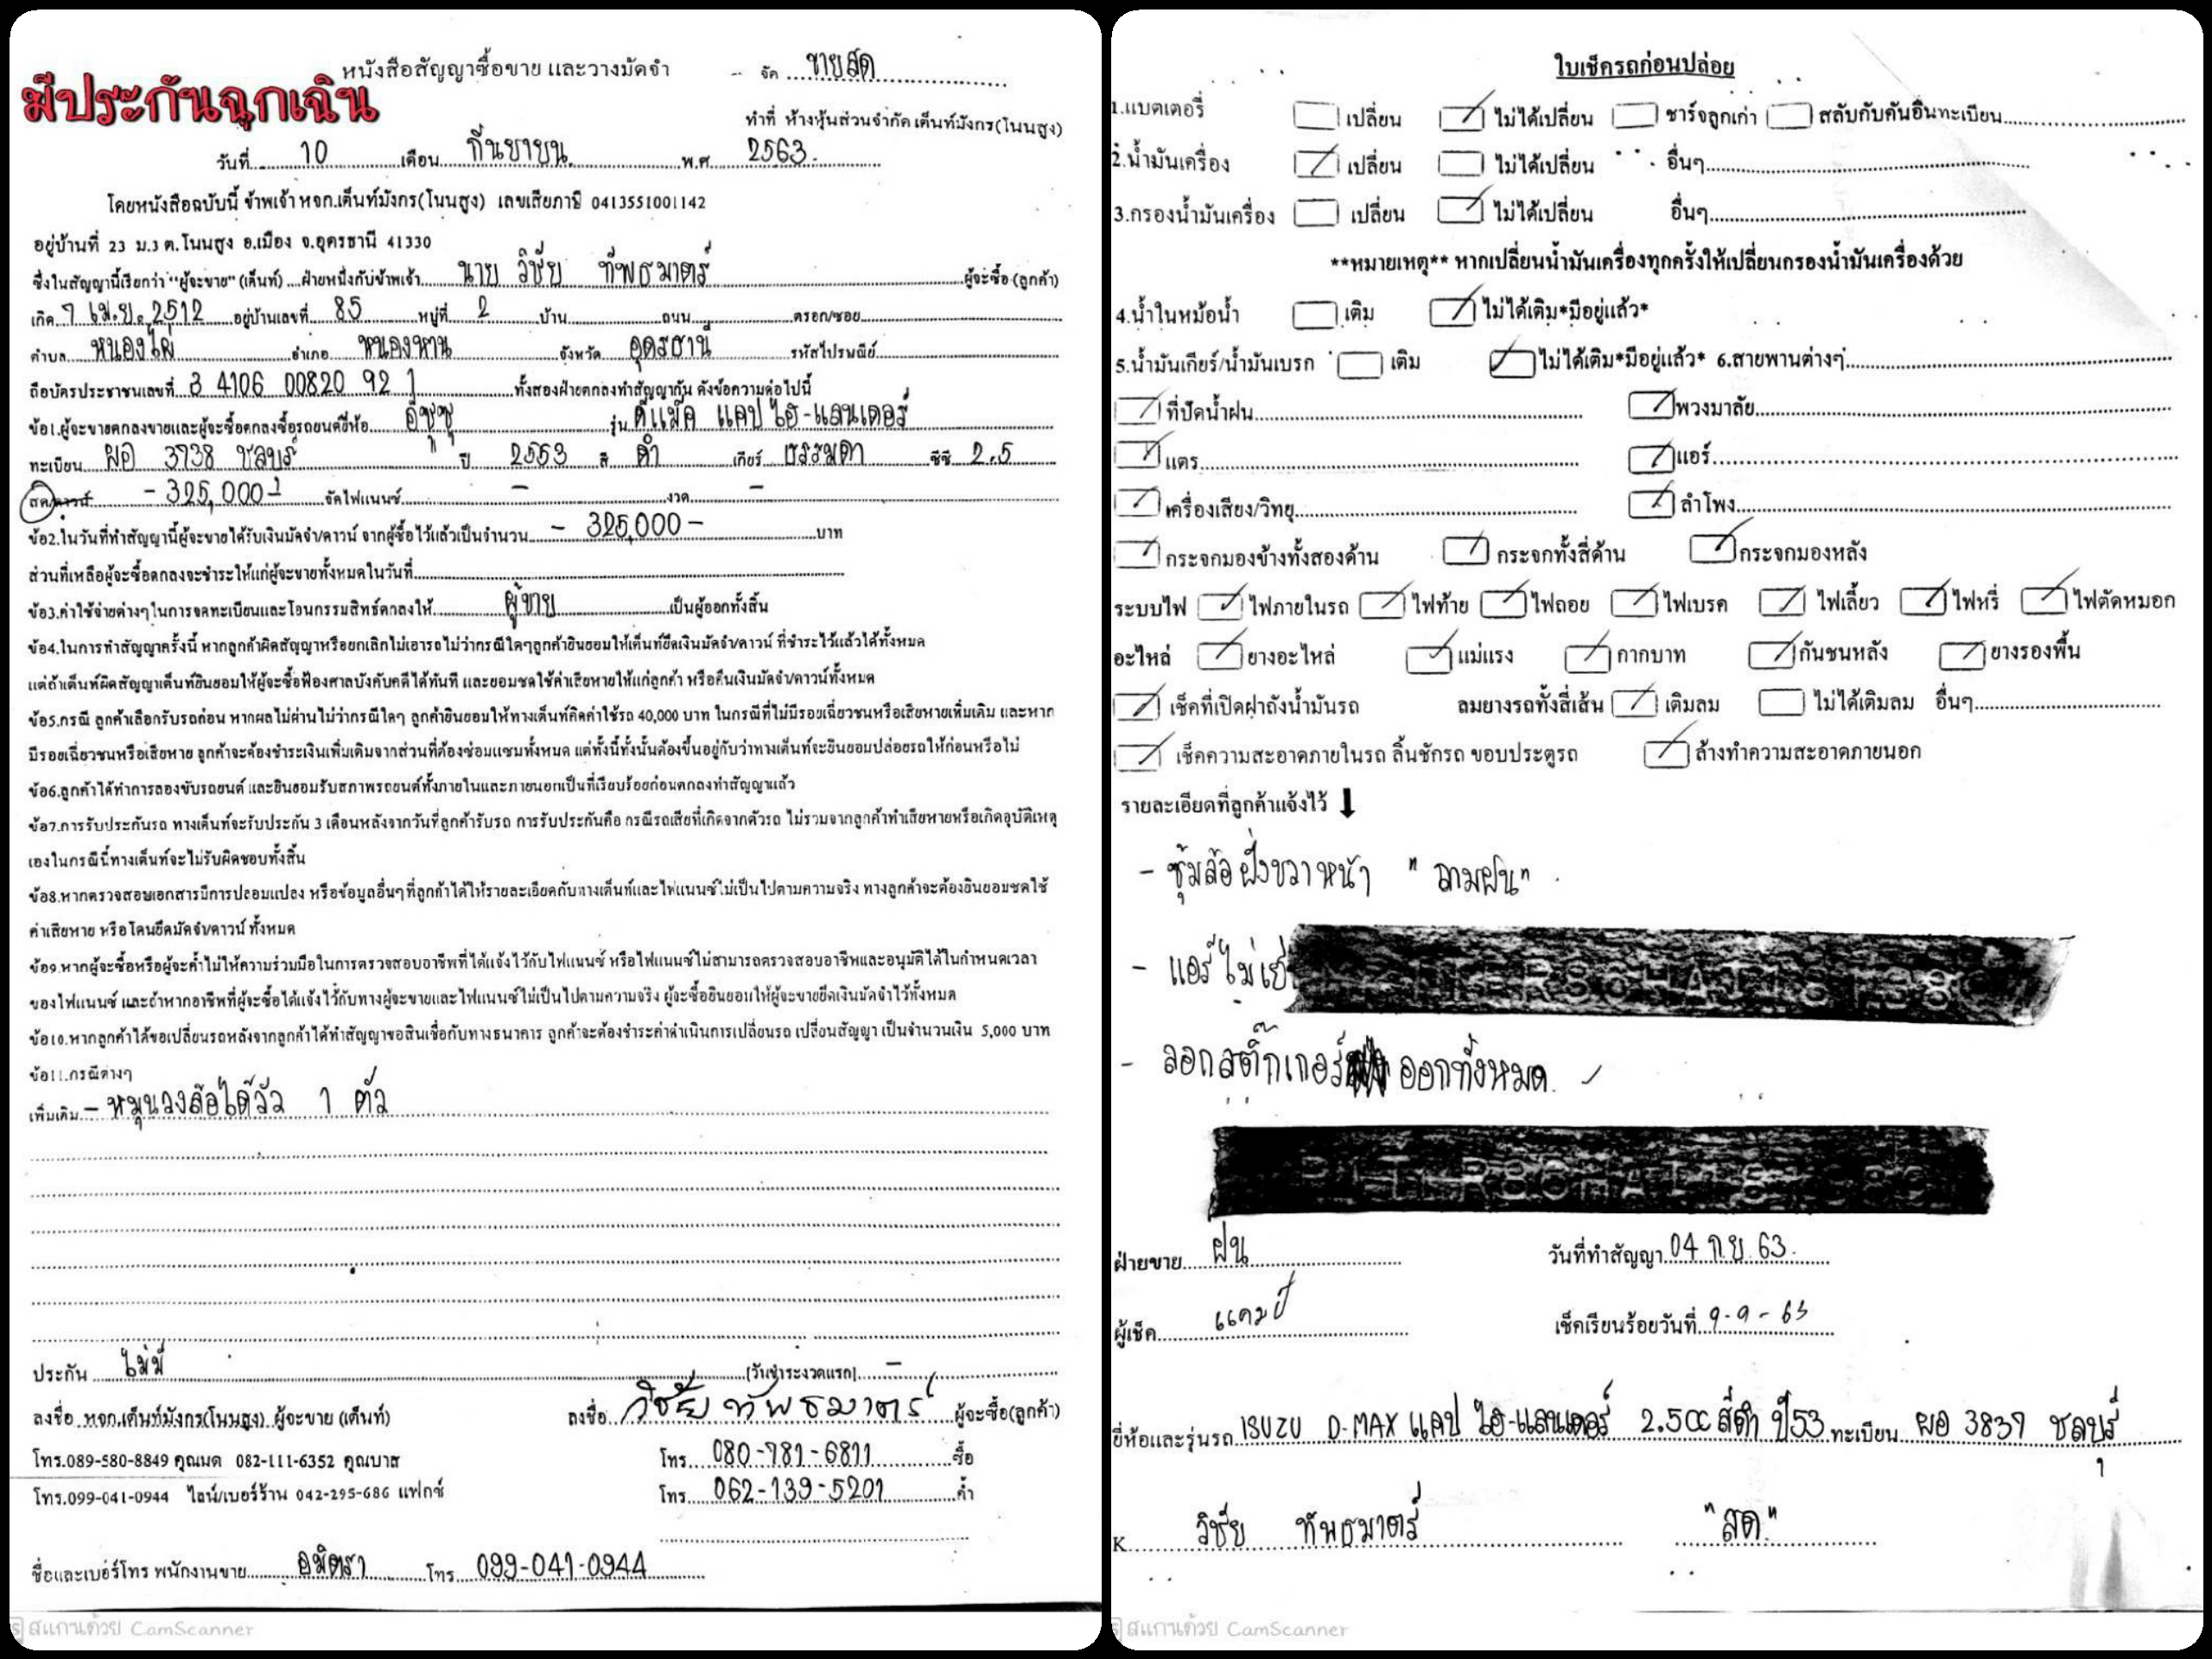 มีประกันฉุกเฉิน
หนังสือสัญญาซื้อขาย และวางมัดจำ
จัด ขายสด
ทำที่ ห้างหุ้นส่วนจำกัด เต็นท์มังกร(โนนสูง)
วันที่ 10 เดือน กันยายน พ.ศ. 2563
โดยหนังสือฉบับนี้ ข้าพเจ้า หจก.เต็นท์มังกร(โนนสูง) เลขเสียภาษี 0413551001142
อยู่บ้านที่ 23 ม.3 ต.โนนสูง อ.เมือง จ.อุดรธานี 41330
ซึ่งในสัญญานี้เรียกว่า "ผู้จะขาย" (เต็นท์) ....ฝ่ายหนึ่งกับข้าพเจ้า นาย วิชัย ทัพธมาตร์ ผู้จะซื้อ (ลูกค้า)
เกิด 7 เม.ย. 2512 อยู่บ้านเลขที่ 85 หมู่ที่ 2 บ้าน ถนน ตรอก/ซอย
ตำบล หนองไผ่ อำเภอ หนองหาน จังหวัด อุดรธานี รหัสไปรษณีย์
ถือบัตรประชาชนเลขที่ 3 4106 00820 92 1 ทั้งสองฝ่ายตกลงทำสัญญากัน ดังข้อความต่อไปนี้
ข้อ1.ผู้จะขายตกลงขายและผู้จะซื้อตกลงซื้อรถยนต์ยี่ห้อ อีซูซุ รุ่น ดีแม็ค แคป ไฮ-แลนเดอร์
ทะเบียน ผอ 3738 ชลบุรี ปี 2553 สี ดำ เกียร์ ธรรมดา ซีซี 2.5
สด/ดาวน์ - 325,000 - จัดไฟแนนซ์ - งวด -
ข้อ2.ในวันที่ทำสัญญานี้ผู้จะขายได้รับเงินมัดจำ/ดาวน์ จากผู้ซื้อไว้แล้วเป็นจำนวน - 325,000 - บาท
ส่วนที่เหลือผู้จะซื้อตกลงจะชำระให้แก่ผู้จะขายทั้งหมดในวันที่
ข้อ3.ค่าใช้จ่ายต่างๆในการจดทะเบียนและโอนกรรมสิทธ์ตกลงให้ ผู้ขาย เป็นผู้ออกทั้งสิ้น
ข้อ4.ในการทำสัญญาครั้งนี้ หากลูกค้าผิดสัญญาหรือยกเลิกไม่เอารถ ไม่ว่ากรณีใดๆลูกค้ายินยอมให้เต็นท์ยึดเงินมัดจำ/ดาวน์ ที่ชำระไว้แล้วได้ทั้งหมด
แต่ถ้าเต็นท์ผิดสัญญาเต็นท์ยินยอมให้ผู้จะซื้อฟ้องศาลบังคับคดีได้ทันที และยอมชดใช้ค่าเสียหายให้แก่ลูกค้า หรือคืนเงินมัดจำ/ดาวน์ทั้งหมด
ข้อ5.กรณี ลูกค้าเลือกรับรถก่อน หากผลไม่ผ่านไม่ว่ากรณีใดๆ ลูกค้ายินยอมให้ทางเต็นท์คิดค่าใช้รถ 40,000 บาท ในกรณีที่ไม่มีรอยเฉี่ยวชนหรือเสียหายเพิ่มเติม และหาก
มีรอยเฉี่ยวชนหรือเสียหาย ลูกค้าจะต้องชำระเงินเพิ่มเติมจากส่วนที่ต้องซ่อมแซมทั้งหมด แต่ทั้งนี้ทั้งนั้นต้องขึ้นอยู่กับว่าทางเต็นท์จะยินยอมปล่อยรถให้ก่อนหรือไม่
ข้อ6.ลูกค้าได้ทำการลองขับรถยนต์ และยินยอมรับสภาพรถยนต์ทั้งภายในและภายนอกเป็นที่เรียบร้อยก่อนตกลงทำสัญญาแล้ว
ข้อ7.การรับประกันรถ ทางเต็นท์จะรับประกัน 3 เดือนหลังจากวันที่ลูกค้ารับรถ การรับประกันคือ กรณีรถเสียที่เกิดจากตัวรถ ไม่รวมจากลูกค้าทำเสียหายหรือเกิดอุบัติเหตุ
เองในกรณีนี้ทางเต็นท์จะไม่รับผิดชอบทั้งสิ้น
ข้อ8.หากตรวจสอบเอกสารมีการปลอมแปลง หรือข้อมูลอื่นๆที่ลูกค้าได้ให้รายละเอียดกับทางเต็นท์และไฟแนนซ์ไม่เป็นไปตามความจริง ทางลูกค้าจะต้องยินยอมชดใช้
ค่าเสียหาย หรือโดนยึดมัดจำ/ดาวน์ ทั้งหมด
ข้อ9.หากผู้จะซื้อหรือผู้จะค้ำไม่ให้ความร่วมมือในการตรวจสอบอาชีพที่ได้แจ้งไว้กับไฟแนนซ์ หรือไฟแนนซ์ไม่สามารถตรวจสอบอาชีพและอนุมัติได้ในกำหนดเวลา
ของไฟแนนซ์ และถ้าหากอาชีพที่ผู้จะซื้อได้แจ้งไว้กับทางผู้จะขายและไฟแนนซ์ไม่เป็นไปตามความจริง ผู้จะซื้อยินยอมให้ผู้จะขายยึดเงินมัดจำไว้ทั้งหมด
ข้อ10.หากลูกค้าได้ขอเปลี่ยนรถหลังจากลูกค้าได้ทำสัญญาขอสินเชื่อกับทางธนาคาร ลูกค้าจะต้องชำระค่าดำเนินการเปลี่ยนรถ เปลี่ยนสัญญา เป็นจำนวนเงิน 5,000 บาท
ข้อ11.กรณีต่างๆ
เพิ่มเติม - หมุนวงล้อได้วัว 1 ตัว
ประกัน ไม่มี (วันชำระงวดแรก) -
ลงชื่อ หจก.เต็นท์มังกร(โนนสูง) ผู้จะขาย (เต็นท์) ลงชื่อ วิชัย ทัพธมาตร์ ผู้จะซื้อ(ลูกค้า)
โทร.089-580-8849 คุณมด 082-111-6352 คุณบาส โทร. 080-781-6811 ซื้อ
โทร.099-041-0944 ไลน์/เบอร์ร้าน 042-295-686 แฟกซ์ โทร 062-139-5201 ค้ำ
ชื่อและเบอร์โทร พนักงานขาย อมิตรา โทร 099-041-0944
สแกนด้วย CamScanner
ใบเช็ครถก่อนปล่อย
1.แบตเตอรี่ เปลี่ยน ไม่ได้เปลี่ยน ชาร์จลูกเก่า สลับกับคันอื่นทะเบียน
2.น้ำมันเครื่อง เปลี่ยน ไม่ได้เปลี่ยน อื่นๆ
3.กรองน้ำมันเครื่อง เปลี่ยน ไม่ได้เปลี่ยน อื่นๆ
**หมายเหตุ** หากเปลี่ยนน้ำมันเครื่องทุกครั้งให้เปลี่ยนกรองน้ำมันเครื่องด้วย
4.น้ำในหม้อน้ำ เติม ไม่ได้เติม*มีอยู่แล้ว*
5.น้ำมันเกียร์/น้ำมันเบรก เติม ไม่ได้เติม*มีอยู่แล้ว* 6.สายพานต่างๆ
ที่ปัดน้ำฝน พวงมาลัย
แตร แอร์
เครื่องเสียง/วิทยุ ลำโพง
กระจกมองข้างทั้งสองด้าน กระจกทั้งสี่ด้าน กระจกมองหลัง
ระบบไฟ ไฟภายในรถ ไฟท้าย ไฟถอย ไฟเบรค ไฟเลี้ยว ไฟหรี่ ไฟตัดหมอก
อะไหล่ ยางอะไหล่ แม่แรง กากบาท กันชนหลัง ยางรองพื้น
เช็คที่เปิดฝาถังน้ำมันรถ ลมยางรถทั้งสี่เส้น เติมลม ไม่ได้เติมลม อื่นๆ
เช็คความสะอาดภายในรถ ลิ้นชักรถ ขอบประตูรถ ล้างทำความสะอาดภายนอก
รายละเอียดที่ลูกค้าแจ้งไว้
- ซุ้มล้อ ฝั่งขวาหน้า " ถามฝน"
- แอร์ ไม่
- ลอกสติ๊กเกอร์ ออกทั้งหมด
ฝ่ายขาย ฝน วันที่ทำสัญญา 04 ก.ย. 63.
ผู้เช็ค แคมป์ เช็คเรียบร้อยวันที่ 9-9-63
ยี่ห้อและรุ่นรถ ISUZU D-MAX แคป ไฮ-แลนเดอร์ 2.5CC สีดำ ปี53 ทะเบียน ผอ 3839 ชลบุรี
K วิชัย ทัพธมาตร์ "สด"
สแกนด้วย CamScanner